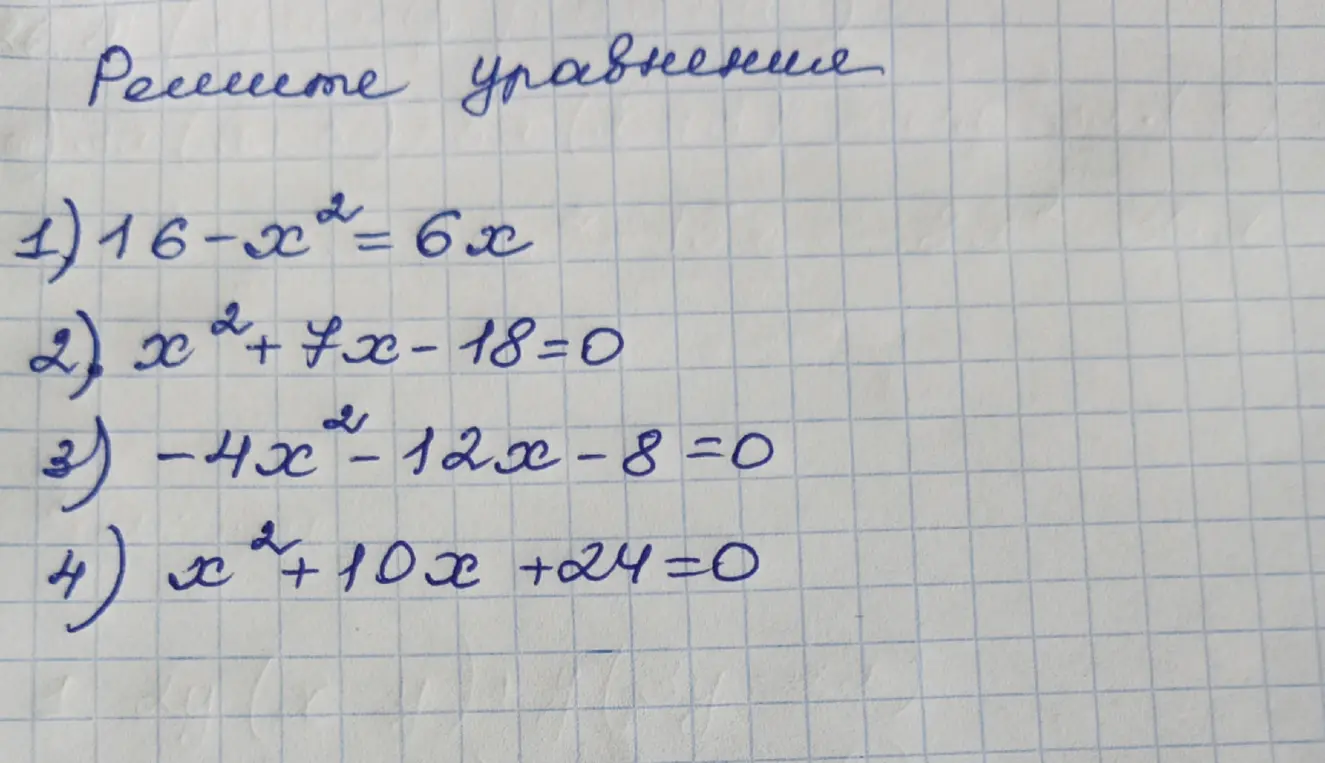 Решите уравнения
1) 16 - x² = 6x
2) x² + 7x - 18 = 0
3) -4x² - 12x - 8 = 0
4) x² + 10x + 24 = 0